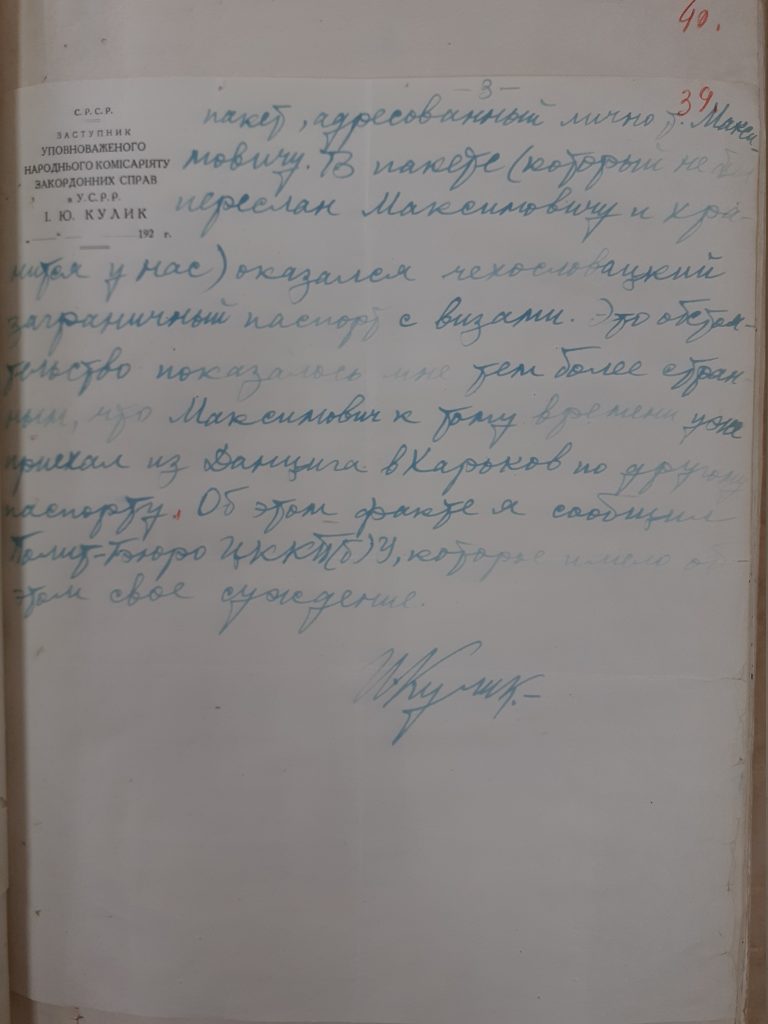 40.
-3-
39
С.Р.С.Р.
ЗАСТУПНИК
УПОВНОВАЖЕНОГО
НАРОДНЬОГО КОМІСАРІЯТУ
ЗАКОРДОННИХ СПРАВ
в У.С.Р.Р.
І. Ю. КУЛИК
„ “ 192 г.
пакет, адресованный лично т. Макси-
мовичу. В пакете (который не был
переслан Максимовичу и хра-
нится у нас) оказался чехословацкий
заграничный паспорт с визами. Это обстоя-
тельство показалось мне тем более стран-
ным, что Максимович к тому времени уже
приехал из Данцига в Харьков по другому
паспорту. Об этом факте я сообщил
Полит-Бюро ЦККП(б)У, которое имело об
этом свое суждение.
И Кулик.-